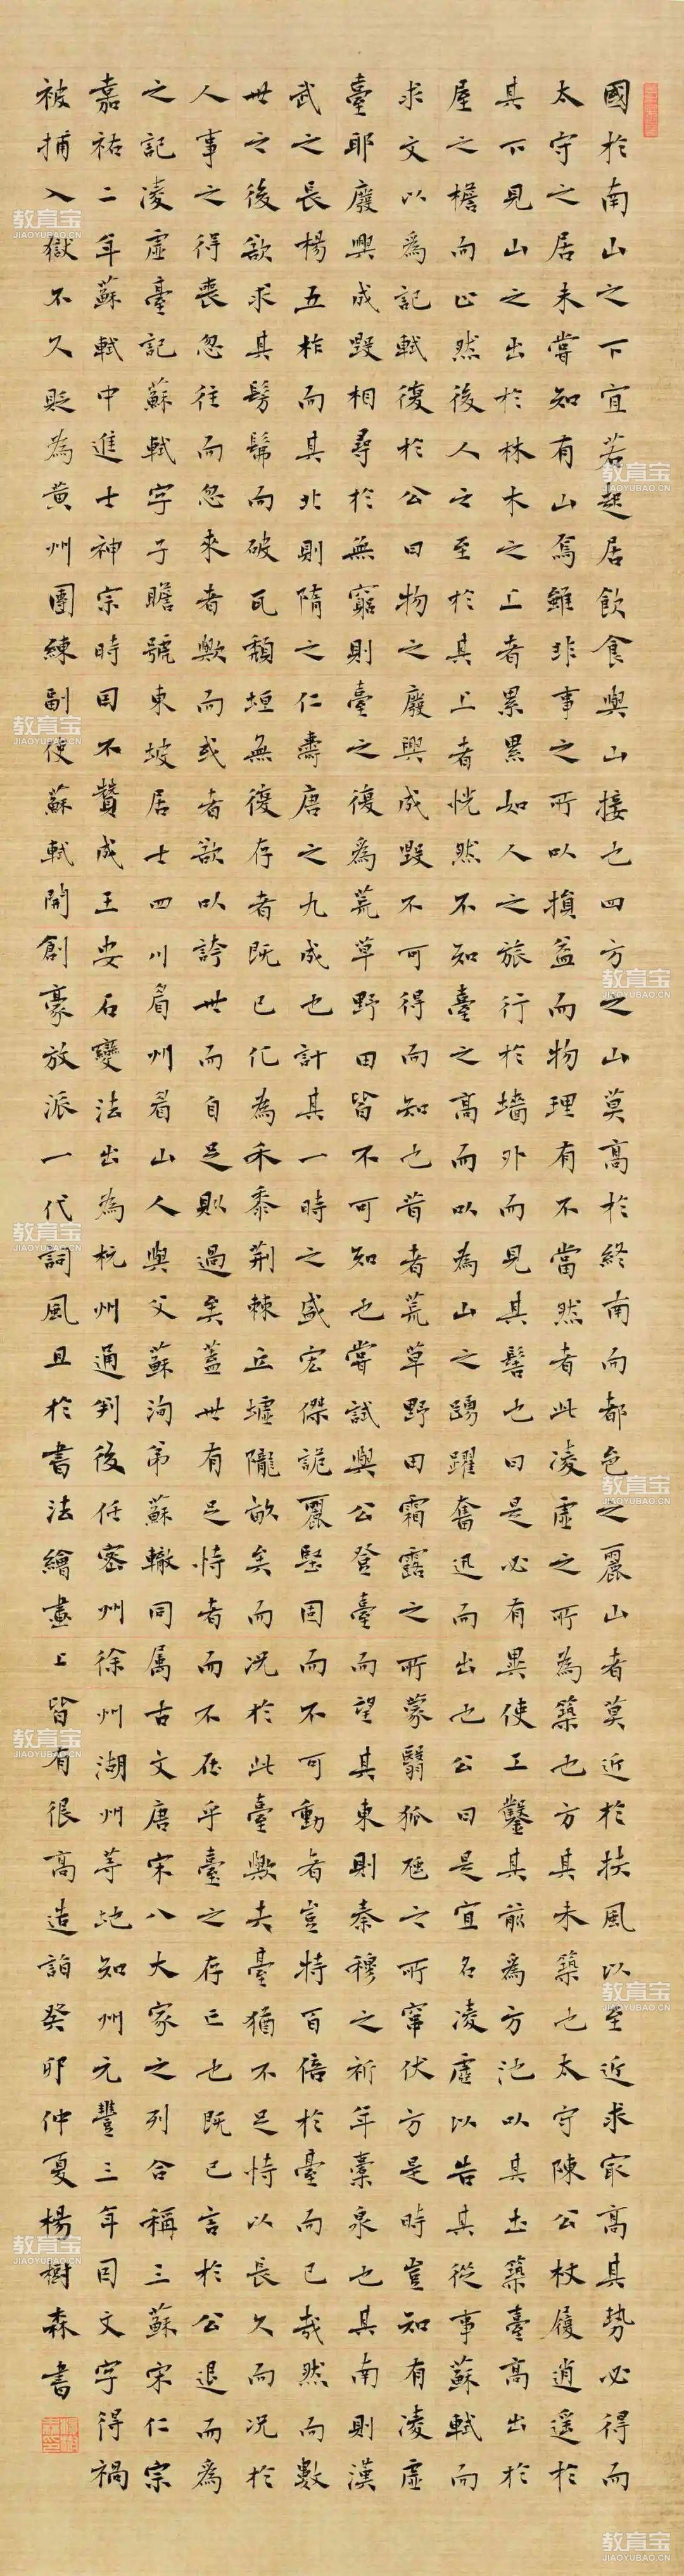 國於南山之下宜若起居飲食與山接也四方之山莫高於終南而都邑之麗山者莫近於扶風以至近求冣高其勢必得而
太守之居未嘗知有山焉雖非事之所以損益而物理有不當然者此凌虛之所為築也方其未築也太守陳公杖履逍遙於
其下見山之出於林木之上者累累如人之旅行於墻外而見其髻也曰是必有異使工鑿其前為方池以其土築臺高出於
屋之檐而止然後人之至於其上者恍然不知臺之高而以為山之踴躍奮迅而出也公曰是宜名凌虛以告其從事蘇軾而
求文以為記軾復於公曰物之廢興成毀不可得而知也昔者荒草野田霜露之所蒙翳狐虺之所竄伏方是時豈知有凌虛
臺耶廢興成毀相尋於無窮則臺之復為荒草野田皆不可知也嘗試與公登臺而望其東則秦穆之祈年橐泉也其南則漢
武之長楊五柞而其北則隋之仁壽唐之九成也計其一時之盛宏傑詭麗堅固而不可動者豈特百倍於臺而已哉然而數
世之後欲求其髣髴而破瓦頹垣無復存者既已化為禾黍荊棘丘墟隴畝矣而況於此臺歟夫臺猶不足恃以長久而況於
人事之得喪忽往而忽來者歟而或者欲以誇世而自足則過矣蓋世有足恃者而不在乎臺之存亡也既已言於公退而為
之記凌虛臺記蘇軾字子瞻號東坡居士四川眉州眉山人與父蘇洵弟蘇轍同属古文唐宋八大家之列合稱三蘇宋仁宗
嘉祐二年蘇軾中進士神宗時因不贊成王安石變法出為杭州通判後任密州徐州湖州等地知州元豐三年因文字得禍
被捕入獄不久貶為黃州團練副使蘇軾開創豪放派一代詞風且於書法繪畫上皆有很高造詣癸卯仲夏楊樹森書
教育宝
JIAOYUBAO.CN
教育宝
JIAOYUBAO.CN
教育宝
JIAOYUBAO.CN
教育宝
JIAOYUBAO.CN
教育宝
JIAOYUBAO.CN
教育宝
JIAOYUBAO.CN
教育宝
JIAOYUBAO.CN
教育宝
JIAOYUBAO.CN
教育宝
JIAOYUBAO.CN
教育宝
JIAOYUBAO.CN